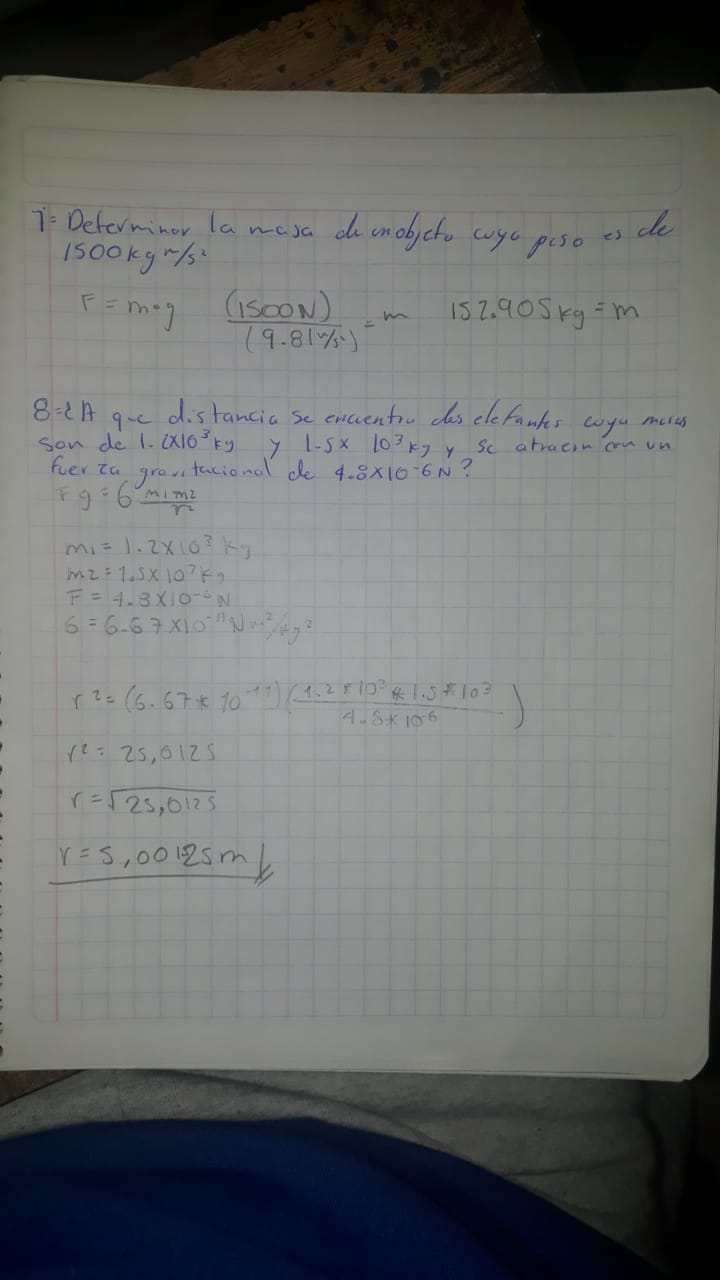 7= Determinar la masa de un objeto cuyo peso es de
1500 kg m/s²
F = m·g (1500N) / (9.81 m/s²) = m 152.905 kg = m
8=¿A que distancia se encuentra dos elefantes cuya masas
son de 1.2X10³ kg y 1.5X 10³ kg y se atraen con un
fuerza gravitacional de 4.8X10-6N?
Fg = G m1 m2 / r²
m1 = 1.2X10³ kg
m2 = 1.5X10³ kg
F = 4.8X10-6 N
G = 6.67X10-11 N m²/kg²
r² = (6.67*10-11)(1.2*10³*1.5*10³ / 4.8*10-6)
r² = 25,0125
r = √25,0125
r = 5,00125m